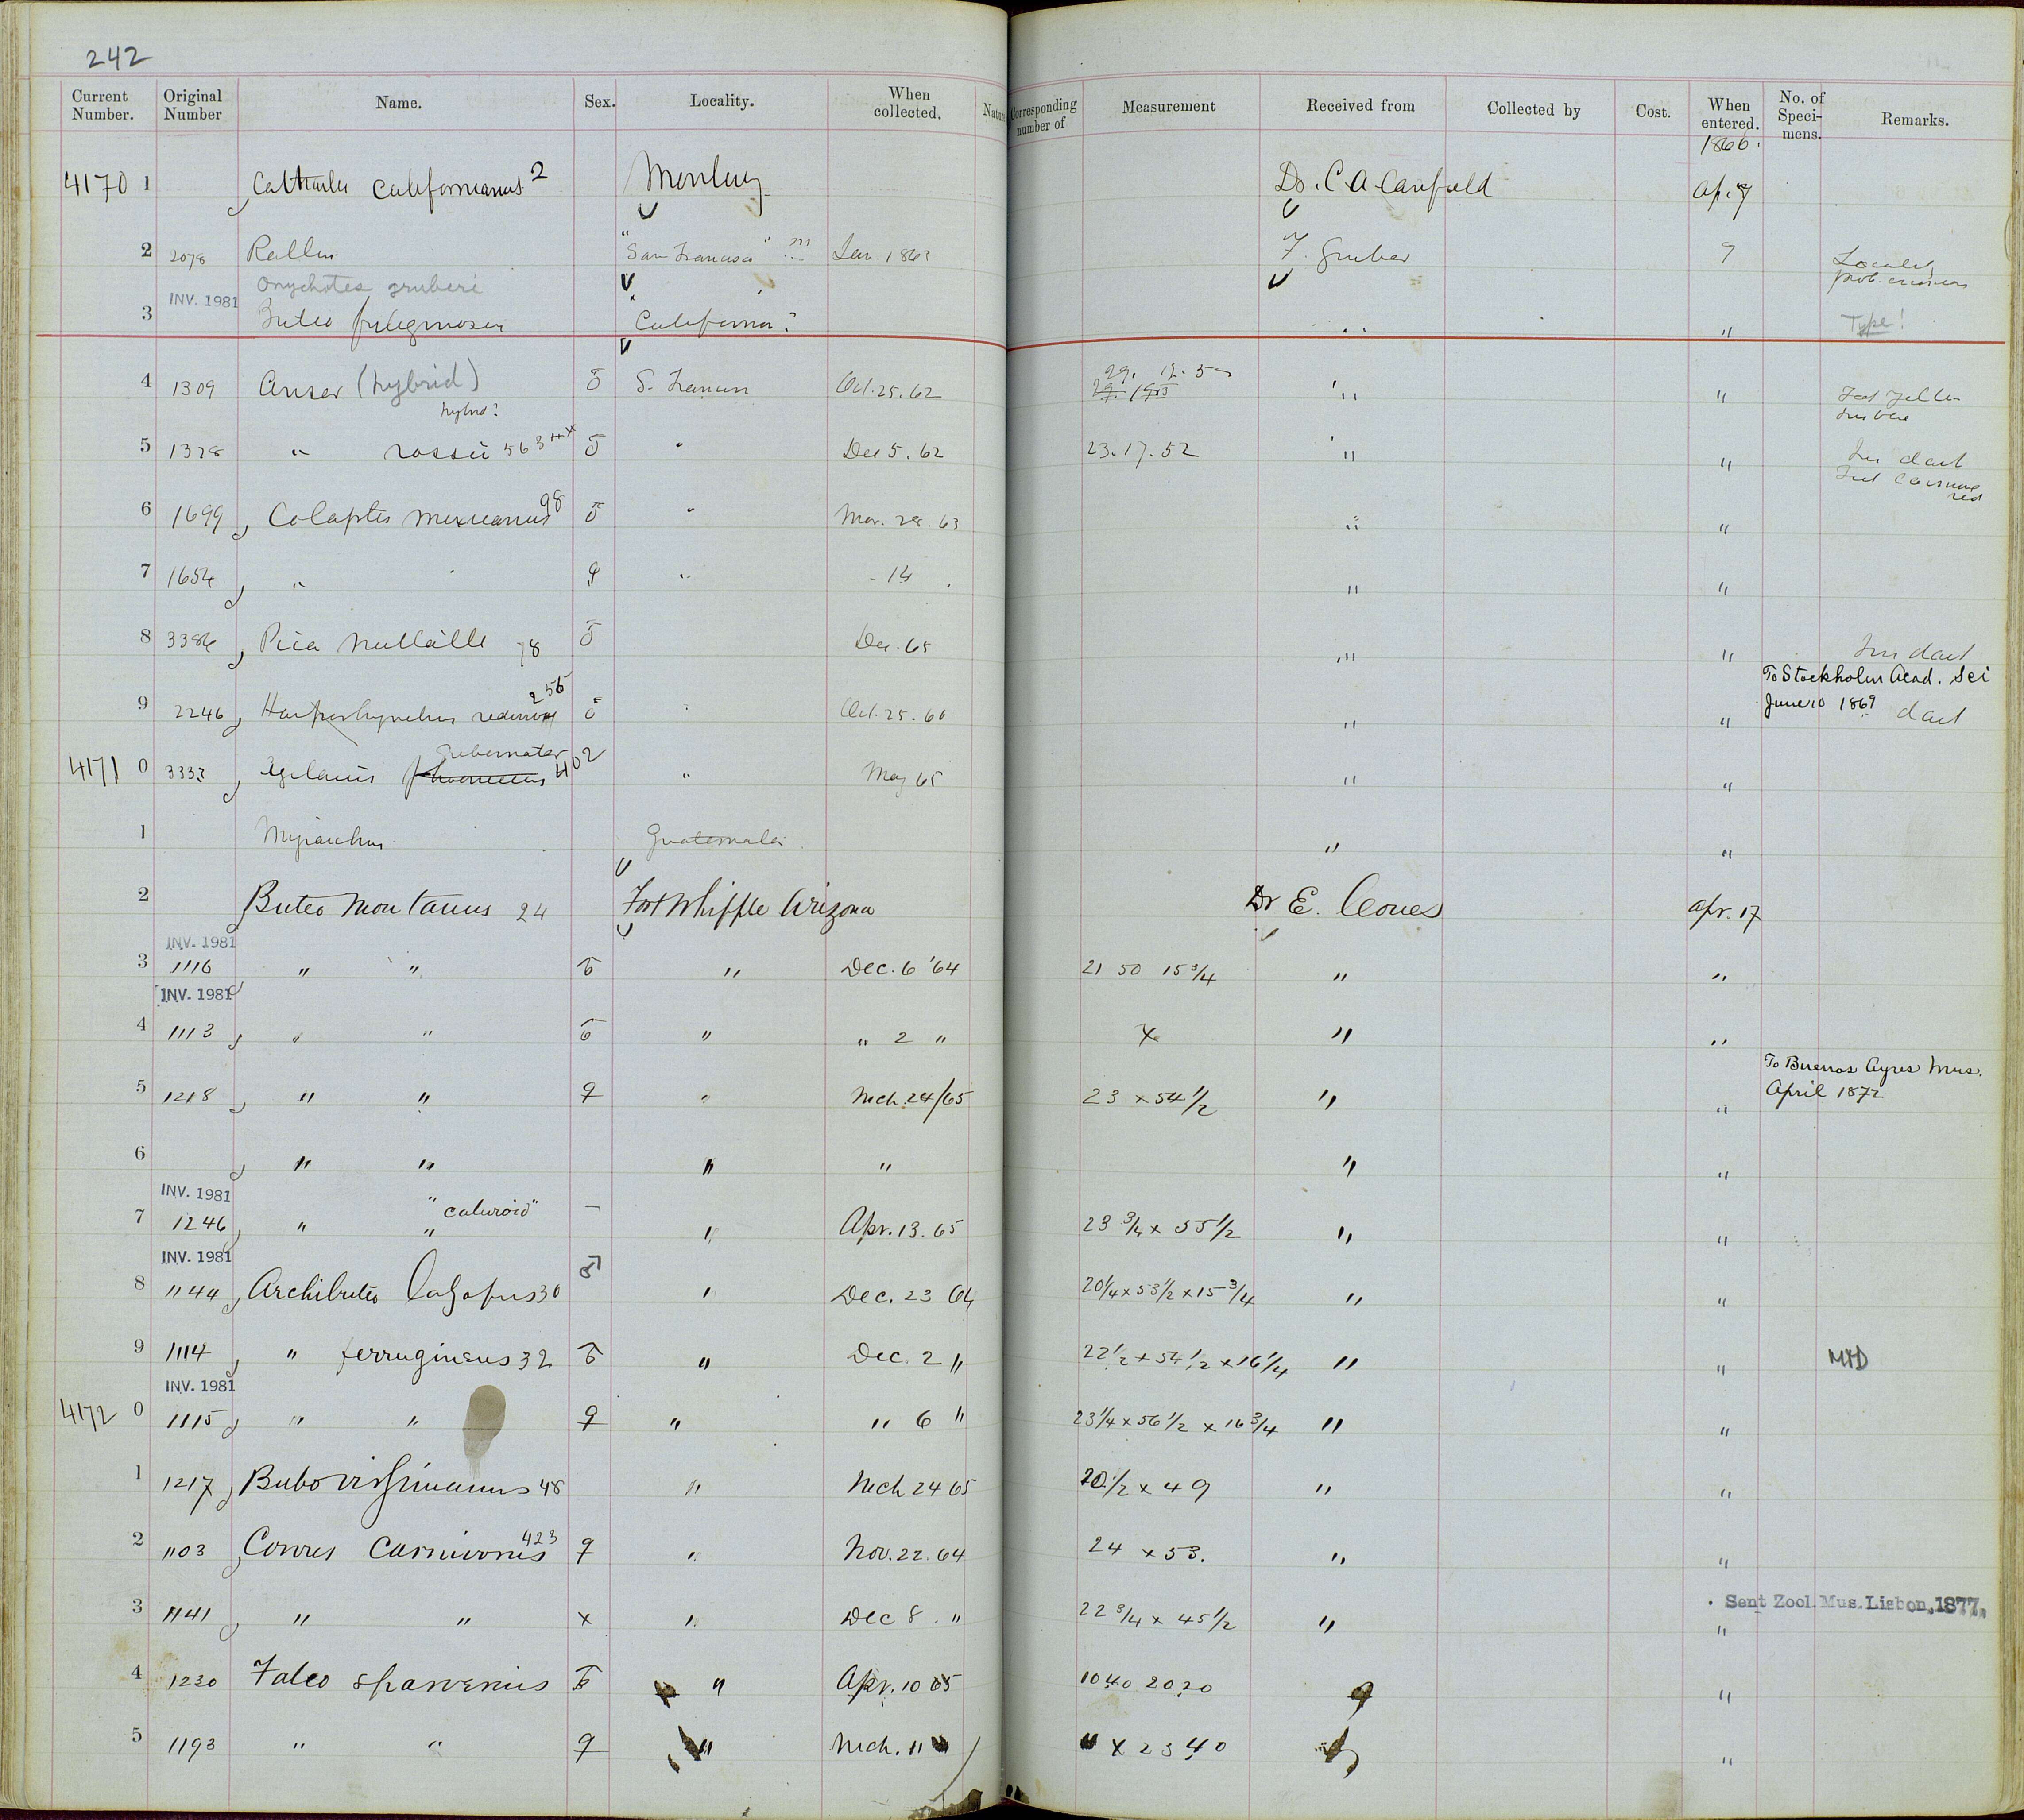 242
Current Number. Original Number Name. Sex. Locality. When collected. Natur Corresponding number of Measurement Received from Collected by Cost. When entered. No. of Specimens. Remarks.
1866.
4170 1 Cathartes californianus 2 Monterey Dr. C A Canfield Ap. 9
2 2078 Rallus "San Francisco" ??? Jan. 1863 F. Gruber 9 Locality prob. erroneous
Onychotes gruberi
INV. 1981
3 Buteo fuliginosus California? " " Type!
4 1309 Anser (hybrid) ♂ S. Francisco Oct. 25. 62 29. 17. 5 " "
hybrid?
5 1378 " rossii 563 ♂ " Dec 5. 62 23. 17. 52 " "
6 1699 Colaptes mexicanus 98 ♂ " Mar. 28. 63 " "
red
7 1654 " ♀ " - 14 " "
8 3386 Pica nuttalli 78 ♂ Dec. 65 " "
To Stockholm Acad. Sci
9 2246 Harporhynchus redivivus 256 ♂ " Oct. 25. 60 " " June 10 1869
gubernator
4171 0 3333 Agelaius phoeniceus 402 " May 65 " "
1 Myiarchus Guatemala " "
2 Buteo montanus 24 Fort Whipple Arizona Dr E. Coues Apr. 17
INV. 1981
3 1116 " " ♂ " Dec. 6 '64 21 50 15 3/4 " "
INV. 1981
4 1113 " " ♂ " " 2 " x " "
To Buenos Ayres Mus.
5 1218 " " ♀ " Mch 24/65 23 x 54 1/2 " " April 1872
6 " " " " " "
INV. 1981
7 1246 " " "caluroid" — " Apr. 13. 65 23 3/4 x 55 1/2 " "
INV. 1981
8 1144 Archibuteo lagopus 30 ♂ " Dec. 23 64 20 1/4 x 53 1/2 x 15 3/4 " "
9 1114 " ferrugineus 32 ♂ " Dec. 2 " 22 1/2 x 54 1/2 x 16 1/4 " "
INV. 1981
4172 0 1115 " " ♀ " " 6 " 23 1/4 x 56 1/2 x 16 3/4 " "
1 1217 Bubo virginianus 48 " Mch 24 65 20 1/2 x 49 " "
2 1103 Corvus carnivorus 423 ♀ " Nov. 22. 64 24 x 53. " "
Sent Zool. Mus. Lisbon, 1877.
3 1141 " " x " Dec 8 " 22 3/4 x 45 1/2 " "
4 1230 Falco sparverius ♂ " Apr. 10 65 10 40 20 20 "
5 1193 " " ♀ " Mch. 11 " " x 23 40 "